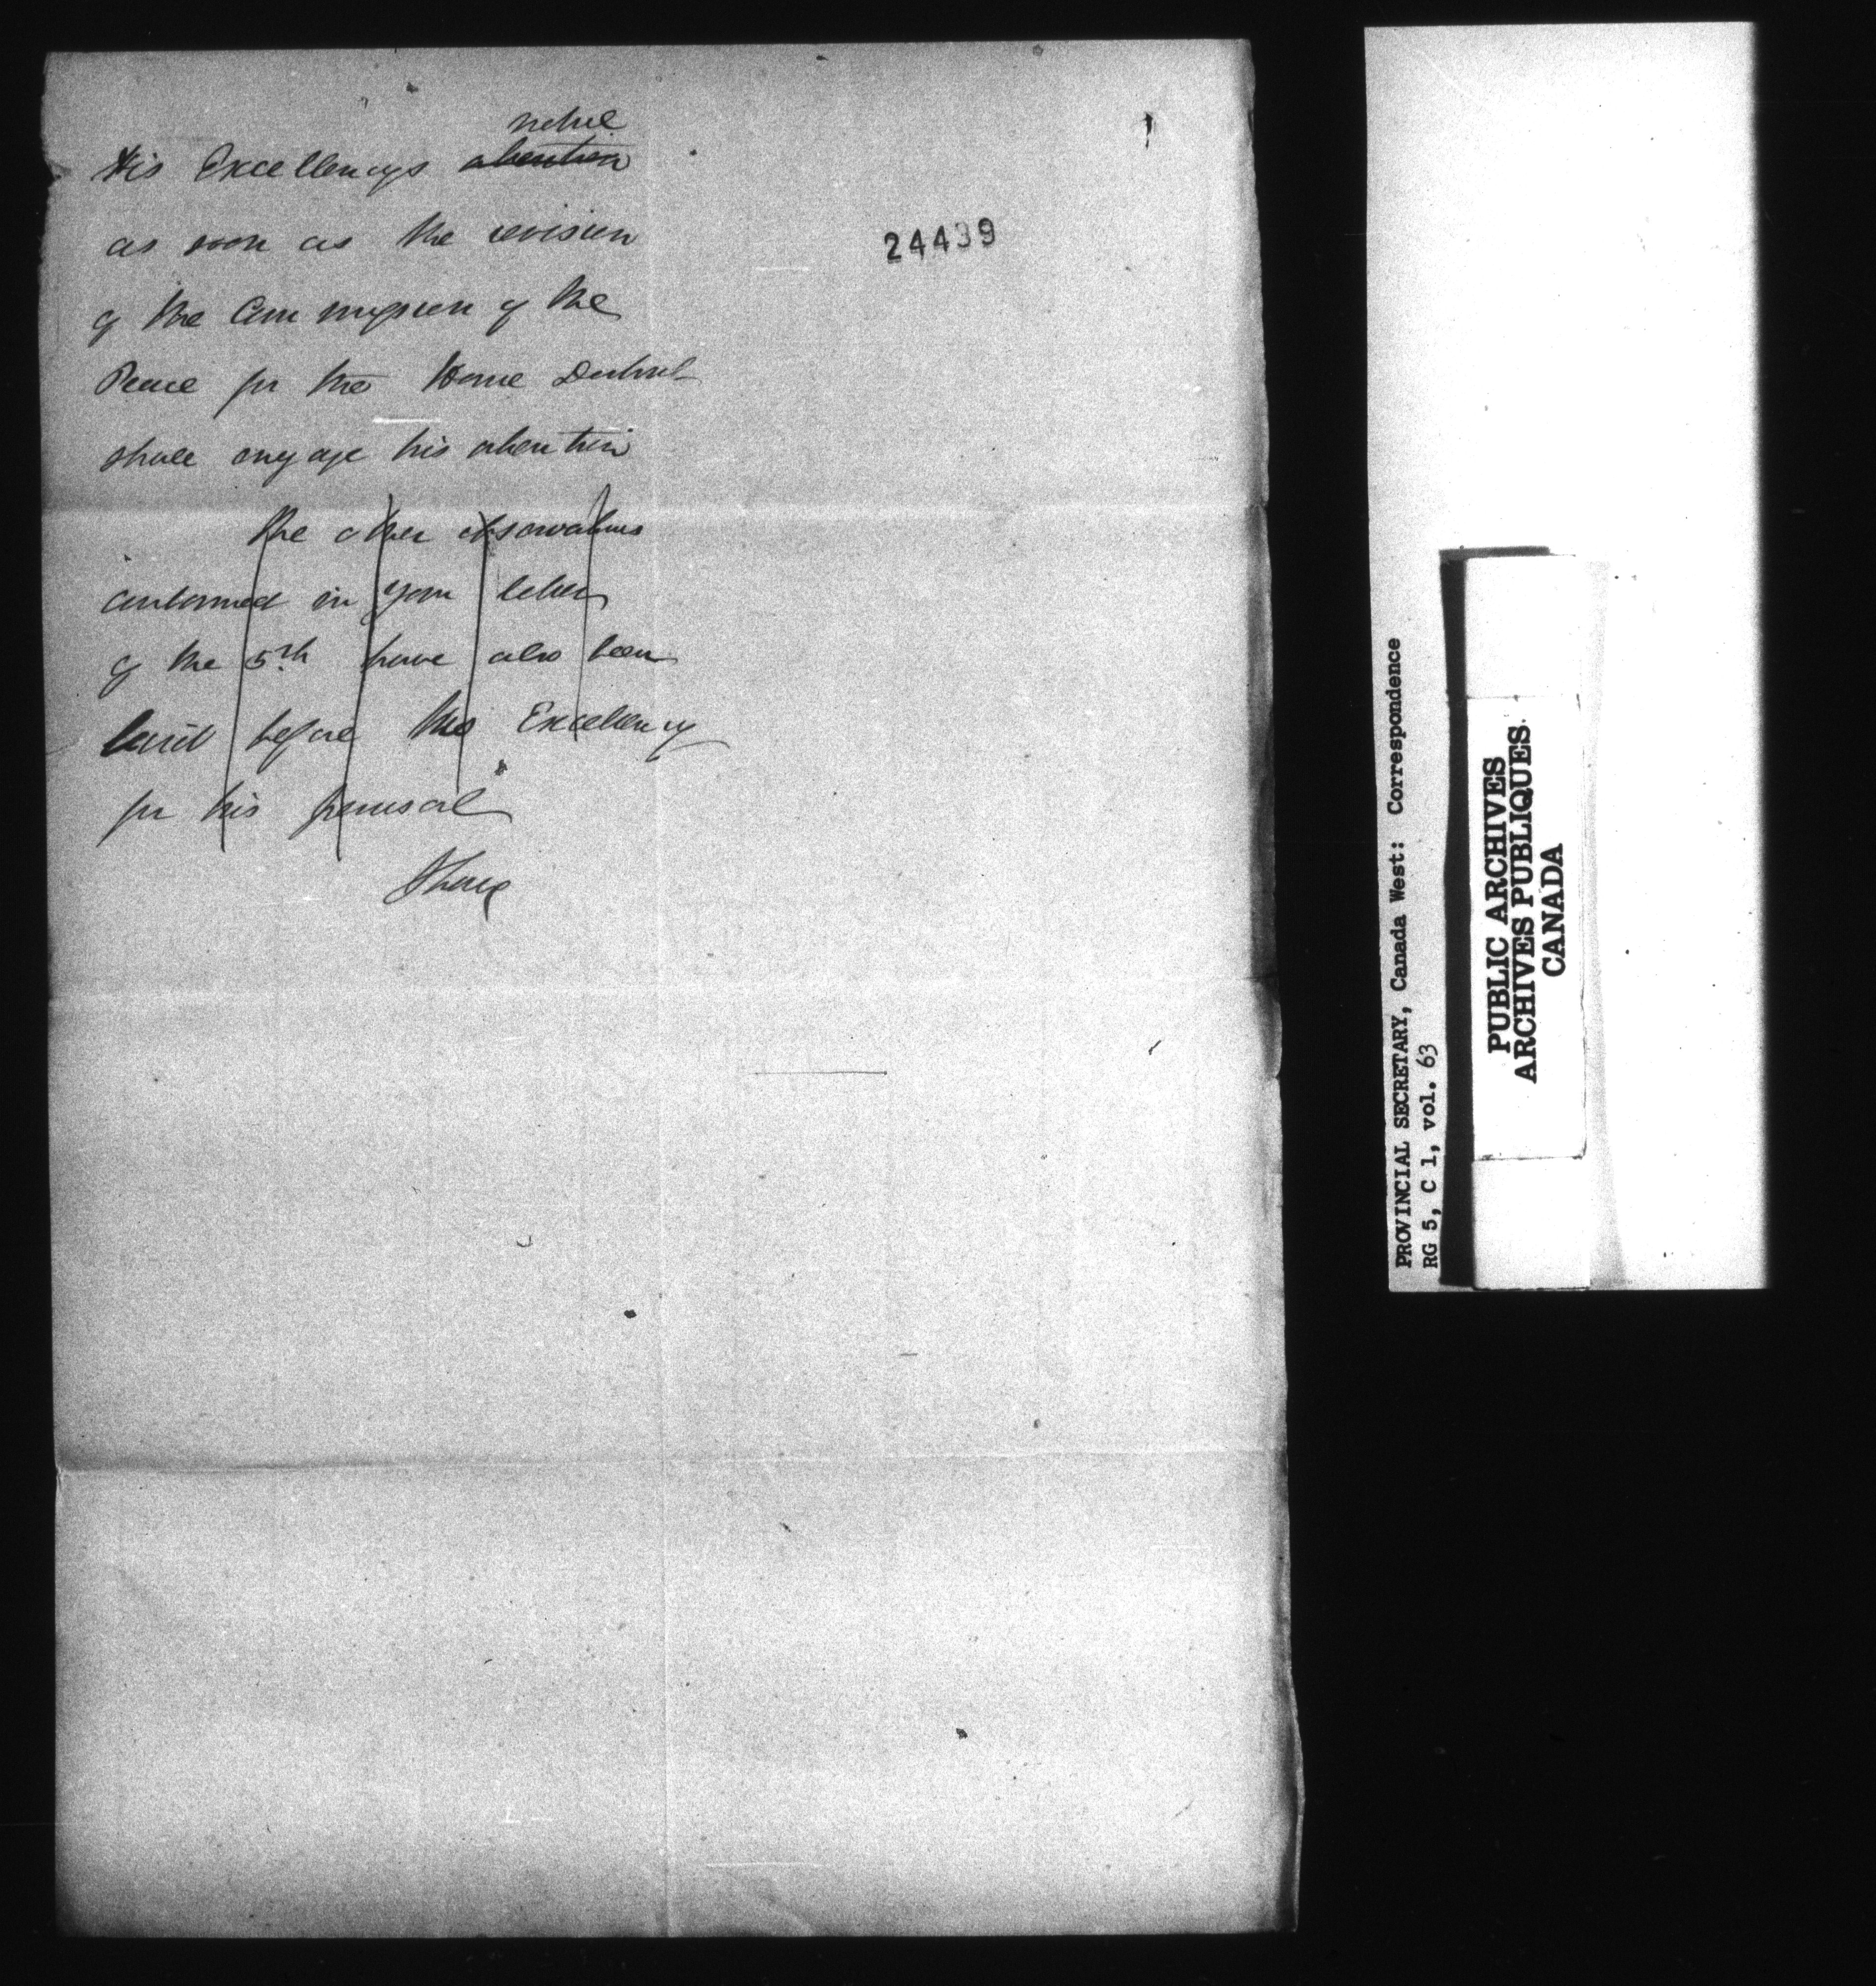 notice
His Excellencys attention
as soon as the revision
of the Commission of the
Peace for the Home District
shall engage his attention
The other observations
contained in your letter
of the 5th have also been
laid before His Excellency
for his perusal
I have
24439
PROVINCIAL SECRETARY, Canada West: Correspondence
RG 5, C 1, vol. 63
PUBLIC ARCHIVES
ARCHIVES PUBLIQUES
CANADA